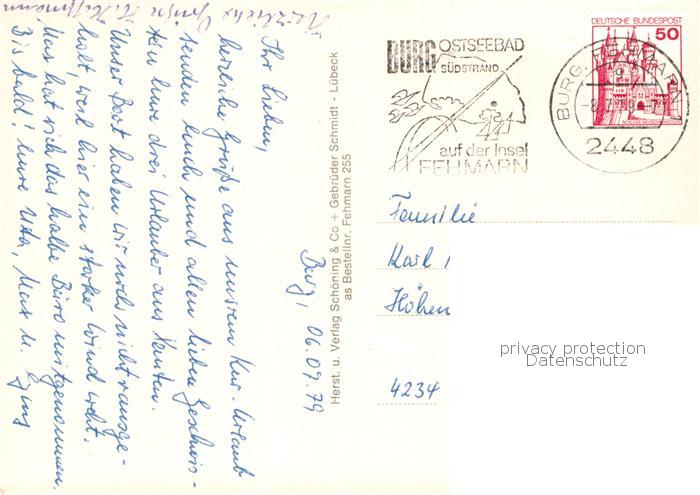 Herzliche Grüße H. Hoffmann
Burg, 06.07.79
Ihr Lieben,
herzliche Grüße aus unserem Kur-Urlaub
senden Euch und allen lieben Geschwis-
tern Eure drei Urlauber aus
Unser Boot haben wir noch nicht rausge-
holt, weil hier ein starker Wind weht.
Max hat sich das halbe Büro mitgenommen.
Bis bald! Eure Uta, Max u. Jens
Herst. u. Verlag Schöning & Co + Gebrüder Schmidt - Lübeck
as Bestellnr. Fehmarn 255
BURG OSTSEEBAD
SÜDSTRAND
auf der Insel
FEHMARN
DEUTSCHE BUNDESPOST
50
BURG, FEHMARN 1
-8.-7.79-7
2448
Familie
Karl
Höhen
4234
privacy protection
Datenschutz